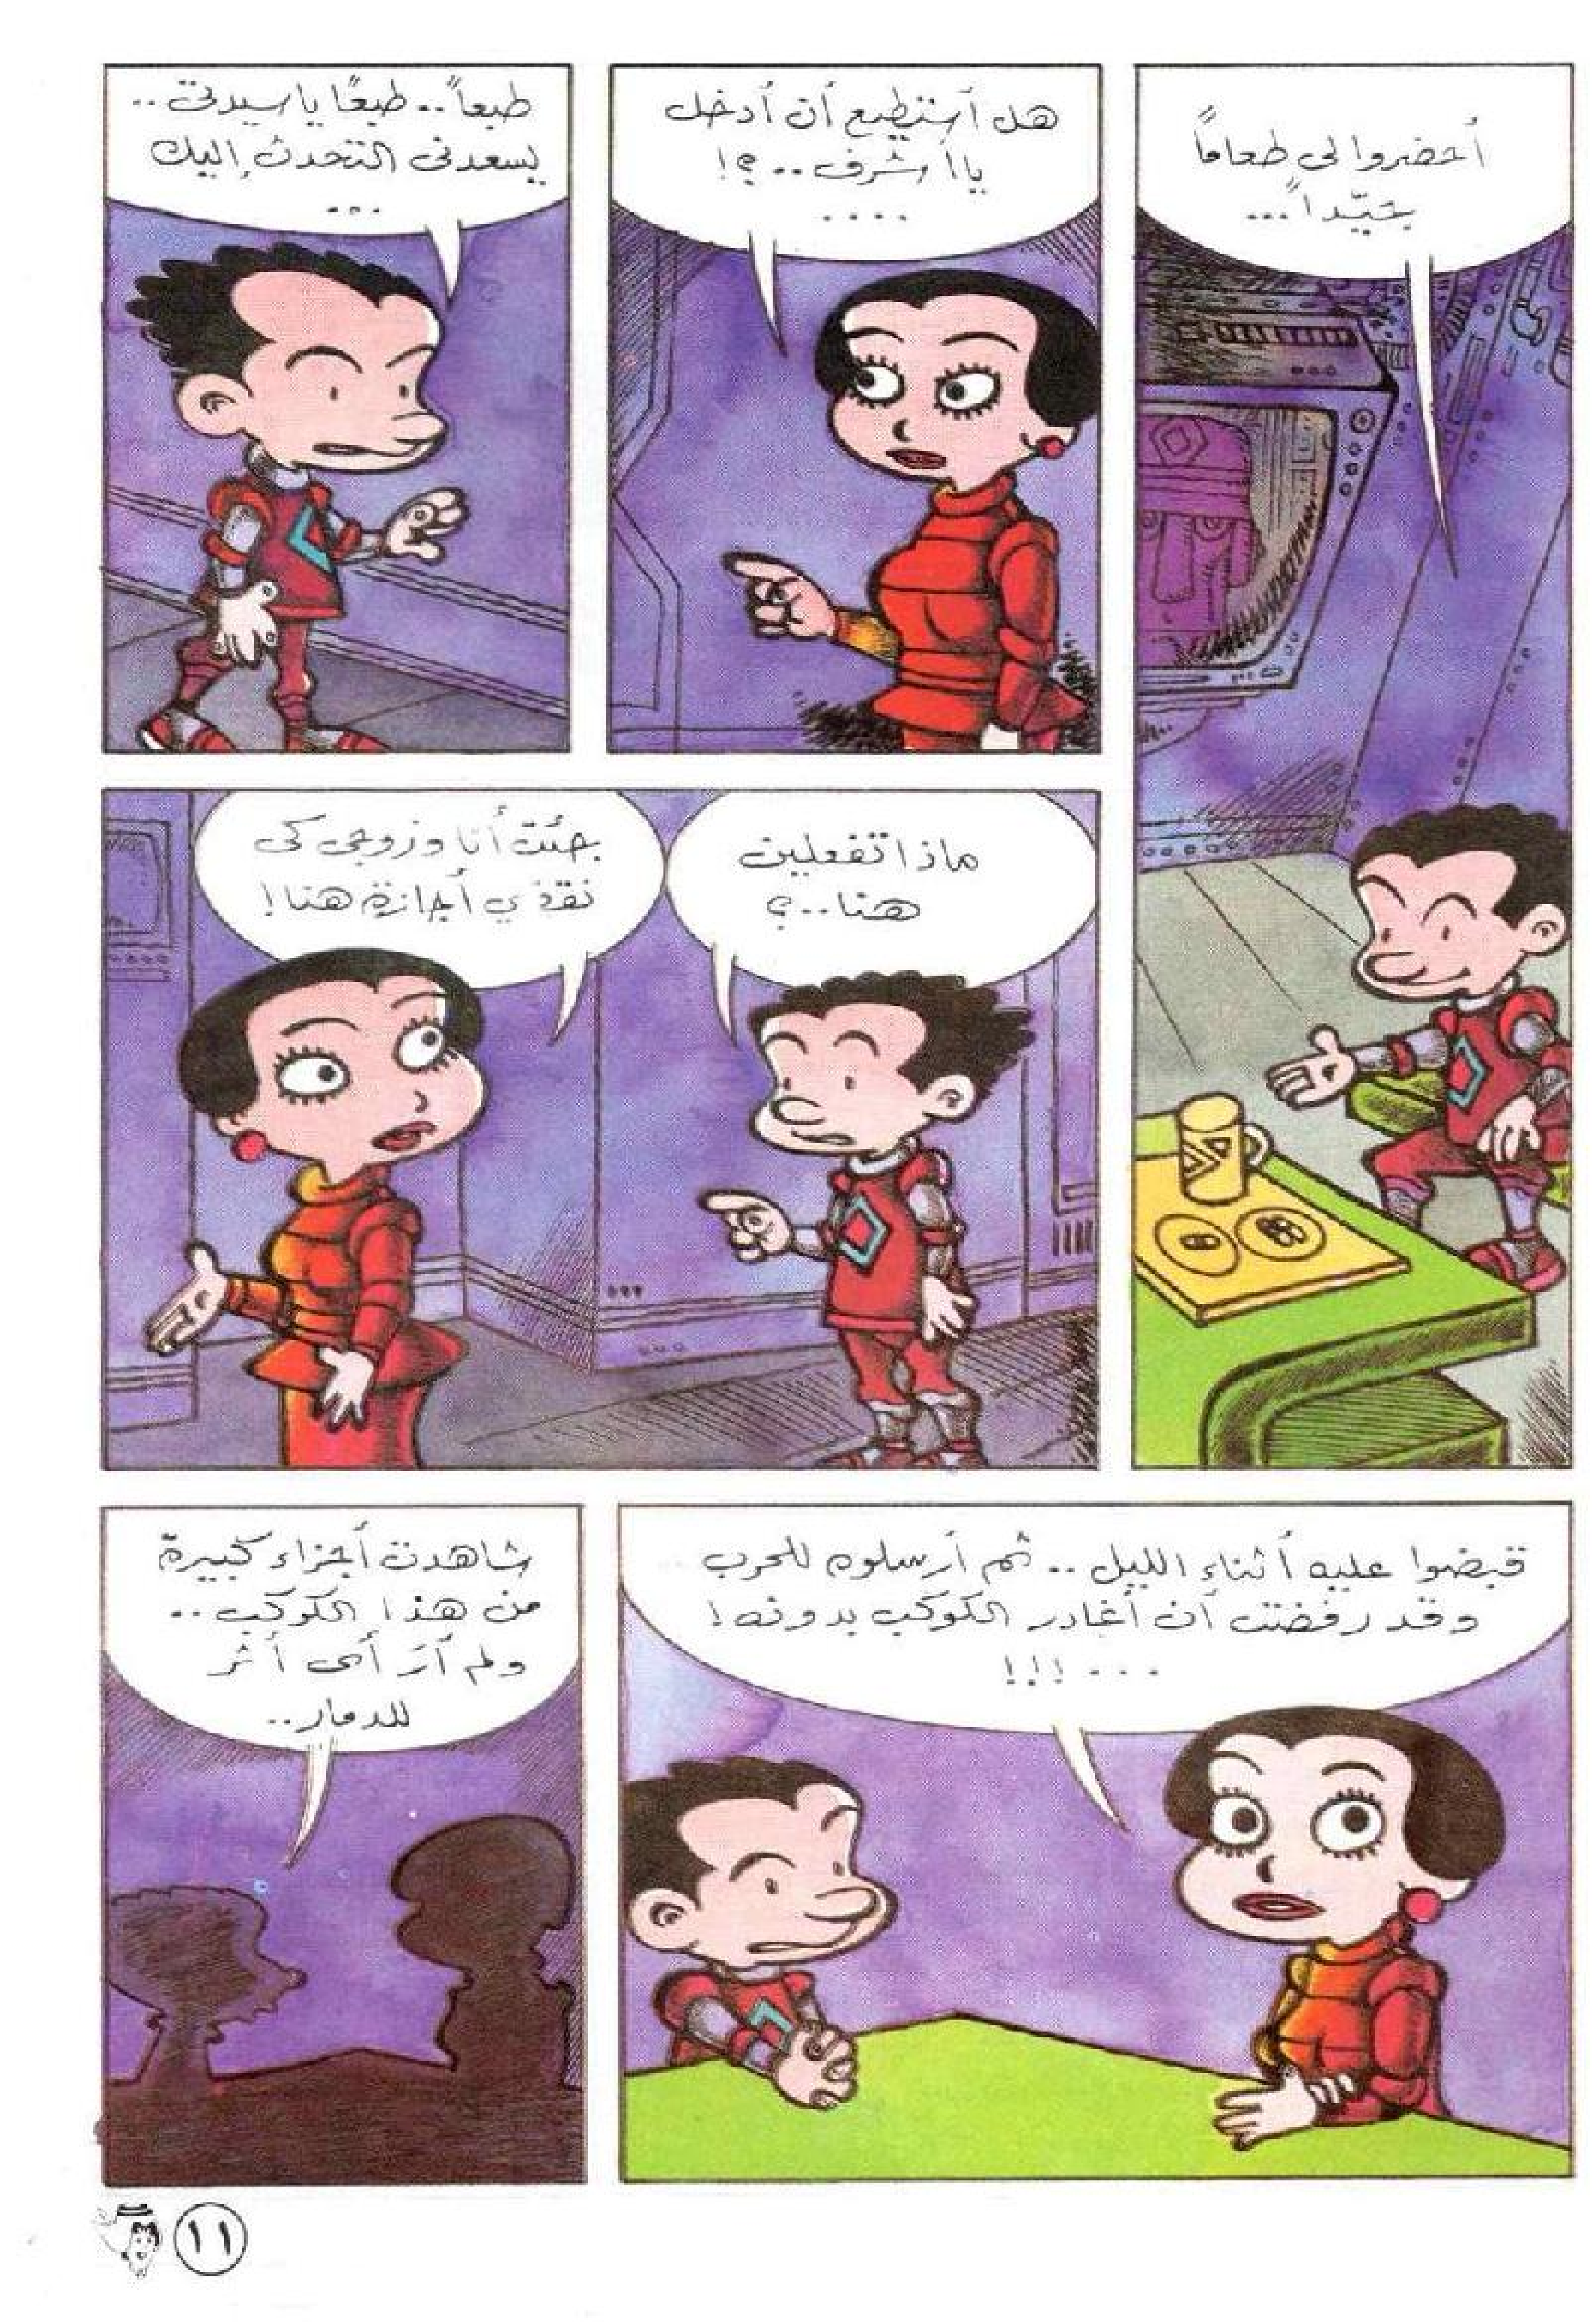 أحضروا لى طعامًا
جيّداً...
هل أستطيع أن أدخل
يا أشرف..؟!
....
طبعاً.. طبعًا يا سيدتى..
يسعدنى التحدث إليك
...
ماذا تفعلين
هنا..؟
جئت أنا وزوجى كى
نقضي أجازة هنا!
قبضوا عليه أثناء الليل.. ثم أرسلوه للحرب
وقد رفضت أن أغادر الكوكب بدونه!
...!!!
شاهدت أجزاء كبيرة
من هذا الكوكب..
ولم أرَ أى أثر
للدمار..
١١